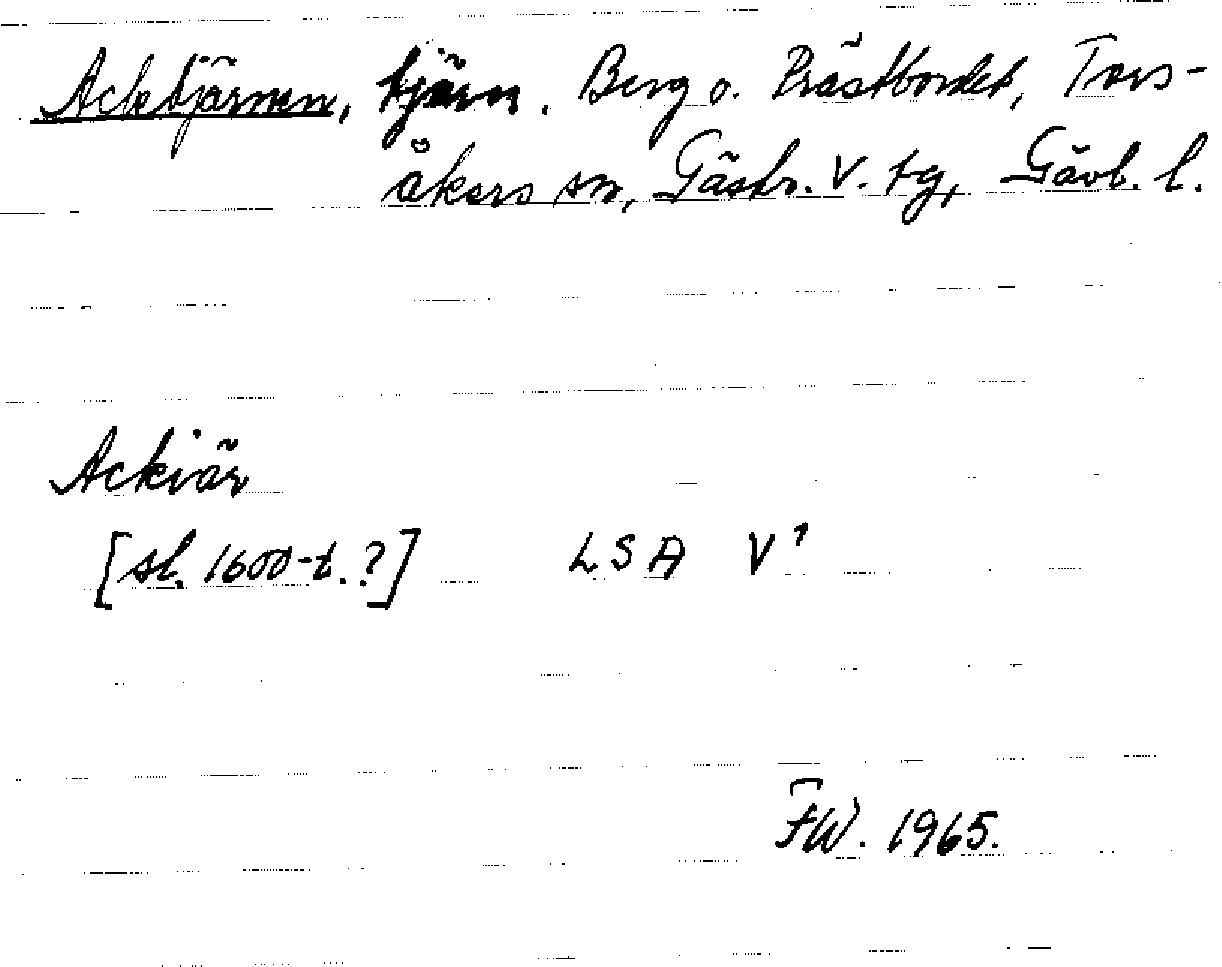 Acktjärnen, tjärn. Berg o. Prästbordet, Tors-
åkers sn, Gästr. V. tg, Gävl. l.
Ackiär
[sl. 1600-t.?] LSA V¹
FW. 1965.